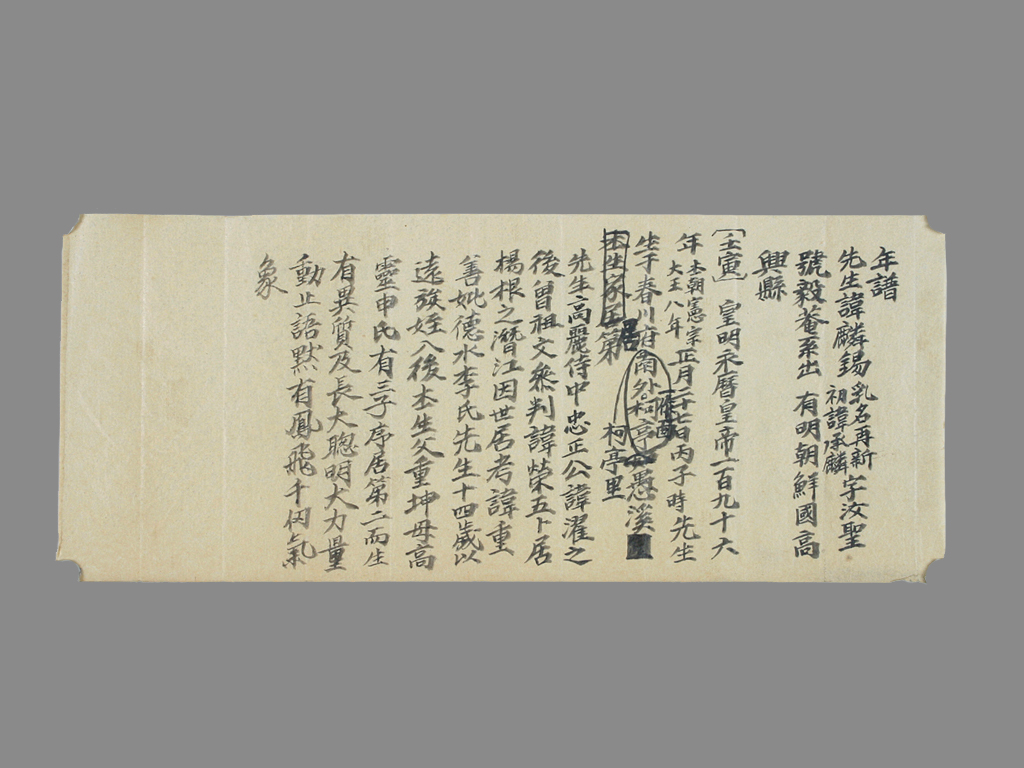 年譜
先生諱麟錫 乳名再新 初諱承麟 字汝聖
號毅菴系出 有明朝鮮國高
興縣
[壬寅] 皇明永曆皇帝一百九十六
年 本朝憲宗大王八年 正月二十七日丙子時先生
生于春川府南外柯亭愚溪
本生家居第 柯亭里
先生高麗侍中忠正公諱濯之
後曾祖文參判諱榮五卜居
楊根之潛江因世居考諱重
善妣德水李氏先生十四歲以
遠族姪入後本生父重坤母高
靈申氏有三子序居第二而生
有異質及長大聰明大力量
動止語默有鳳飛千仞氣
象